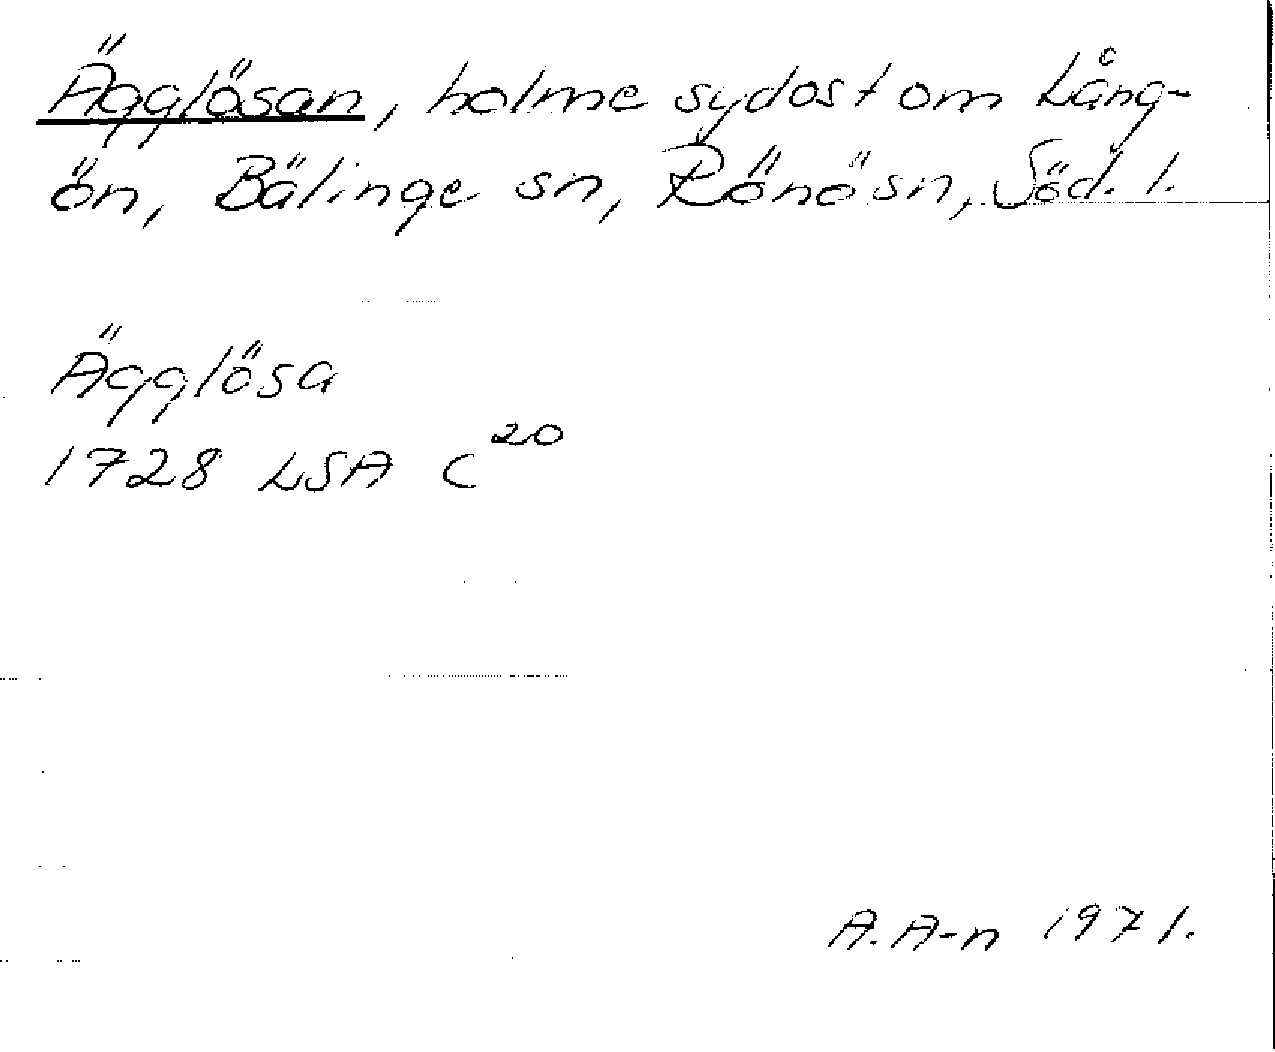 Ägglösan, holme sydost om Lång-
ön, Bälinge sn, Rönö sn, Söd. l.
Ägglösa
1728 LSA C²⁰
A. A-n 1971.